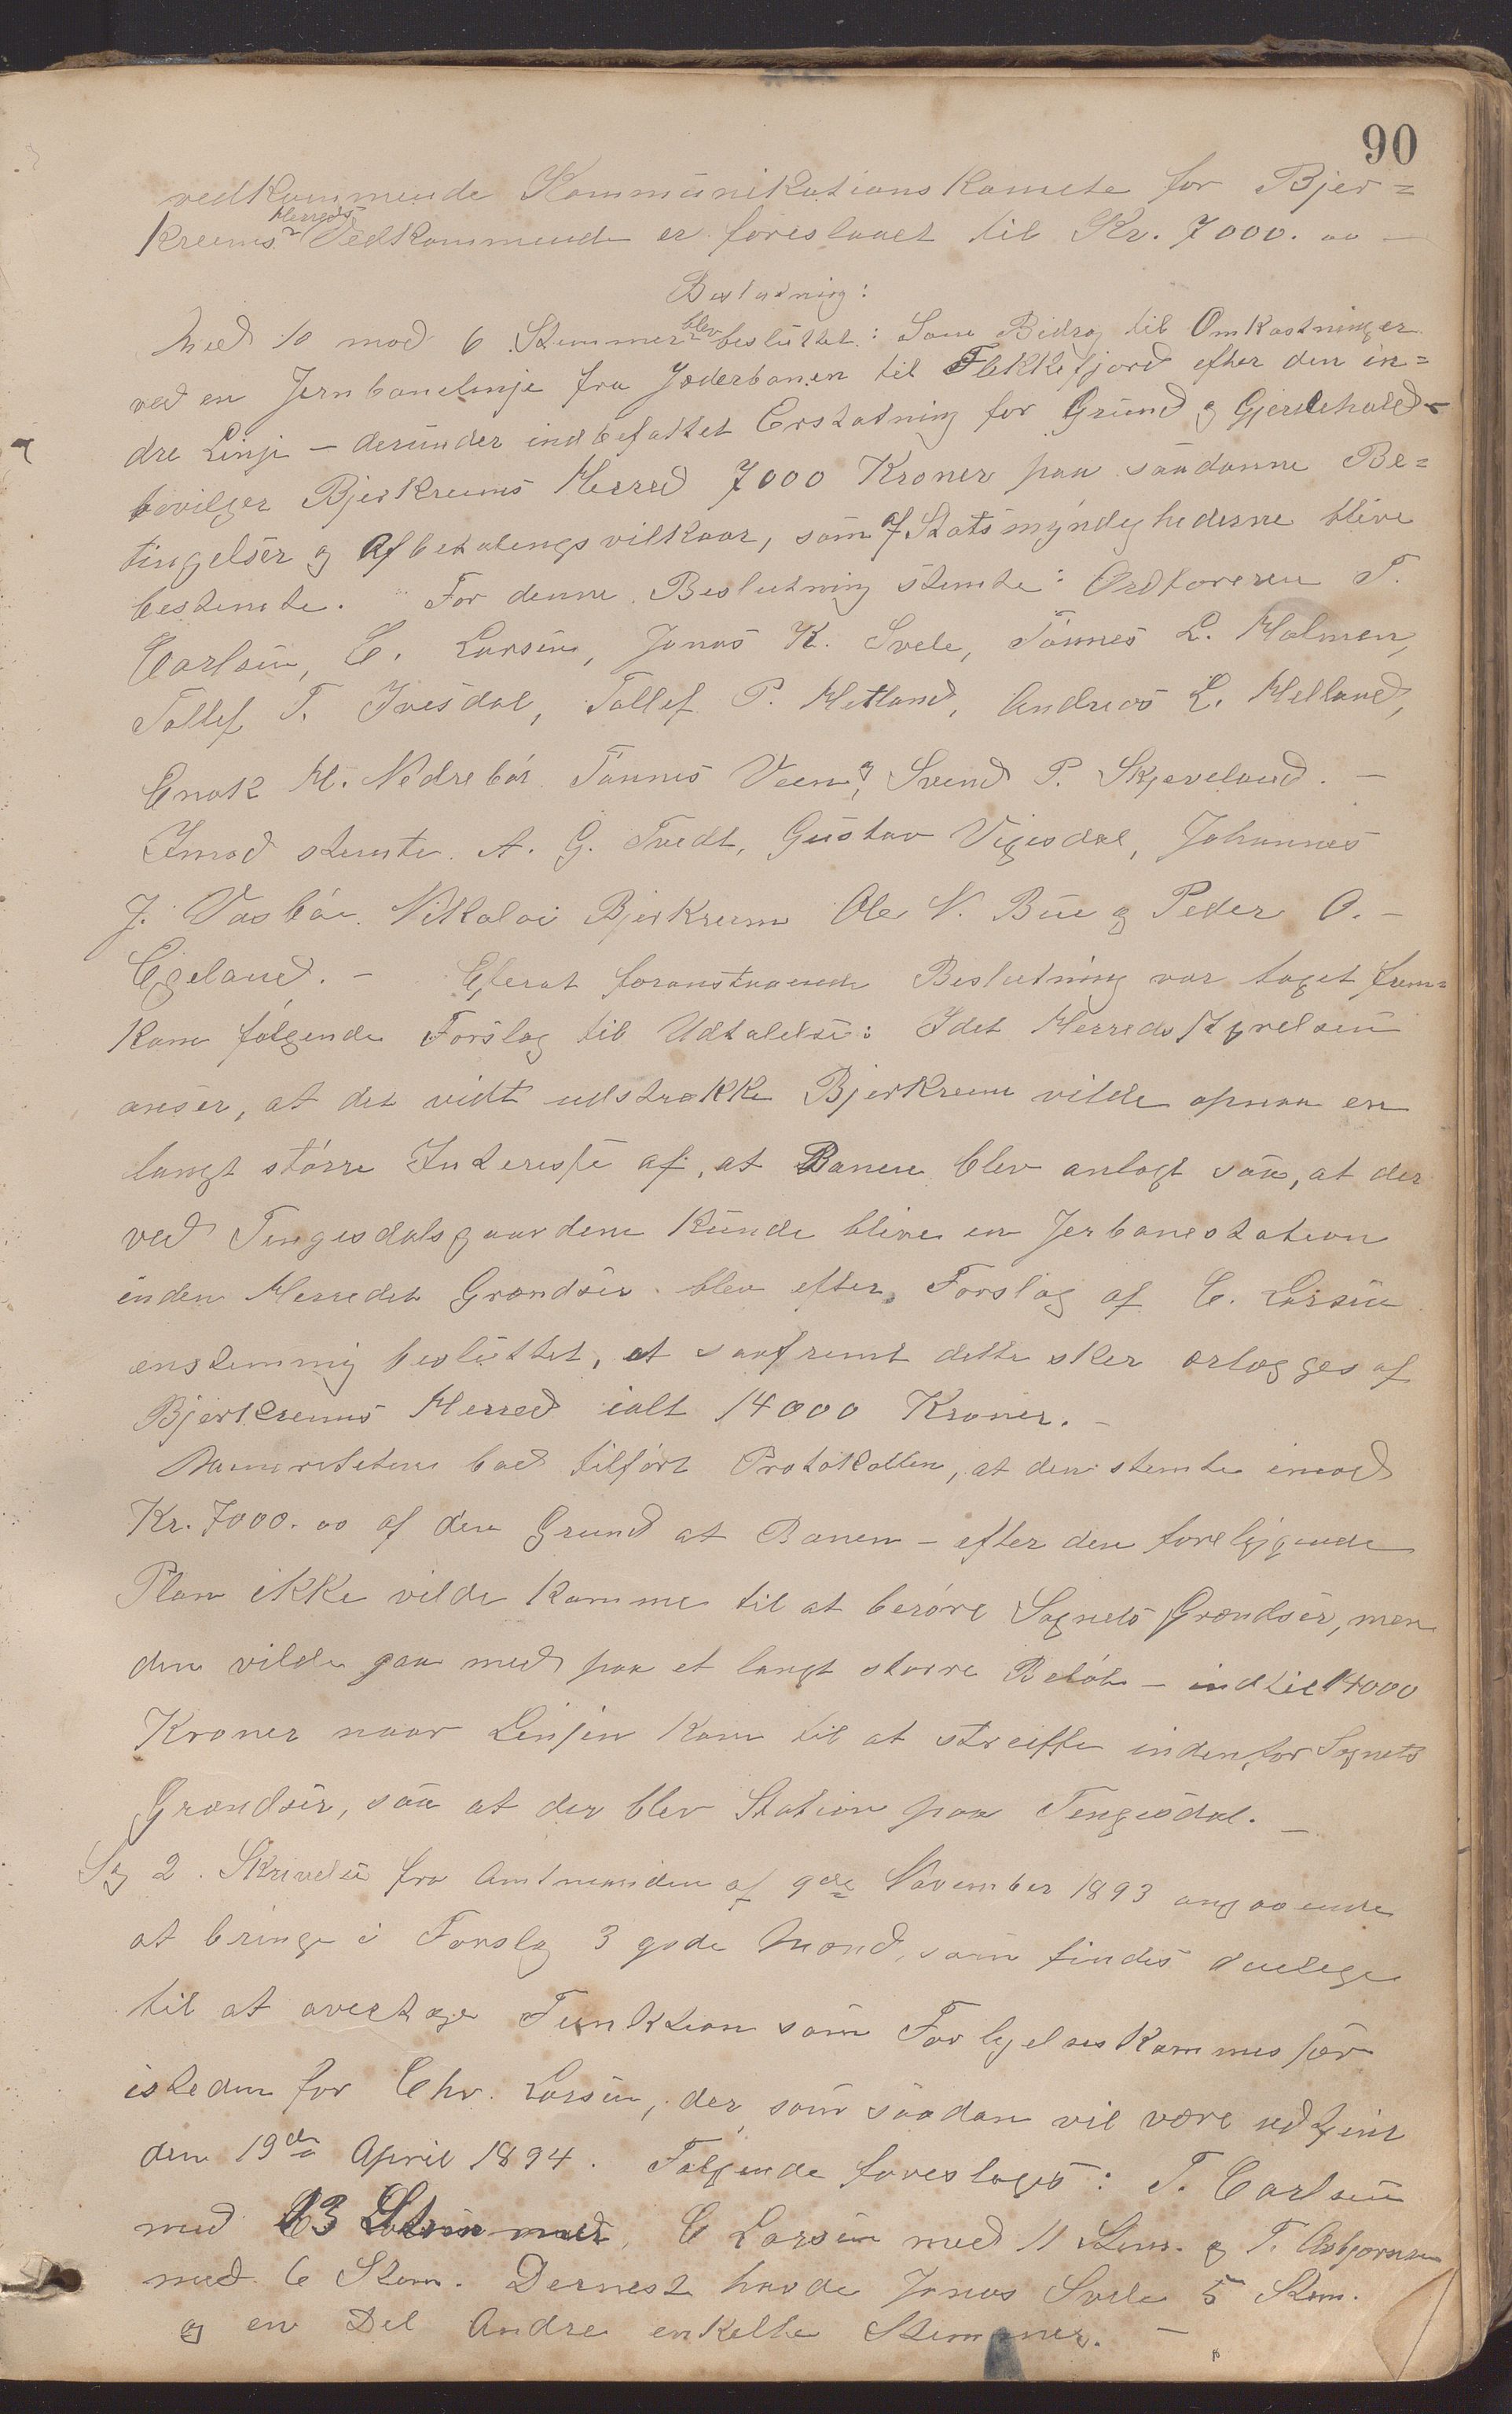 90
vedkommende Kommunikationskomite for Bjer=
kreims Herreds Vedkommende er foreslaaet til Kr. 7000.00 —
Beslutning:
Med 10 mod 6 Stemmer blev besluttet: Som Bidrag til Omkostninger
ved en Jernbanelinje fra Jæderbanen til Flekkefjord efter den in=
dre Linje – derunder indbefattet Erstatning for Grund og Gjerdehold –
bevilger Bjerkreims Herred 7000 Kroner paa saadanne Be=
tingelser og Afbetalingsvilkaar, som af Statsmyndighederne blive
bestemte. For denne Beslutning stemte: Ordføreren T.
Carlsen, C. Larsen, Jonas K. Svele, Tønnes L. Holmen,
Tollef T. Ivesdal, Tollef P. Hetland, Andreas L. Helland,
Enok H. Nedrebø Tønnes Veen, og Svend P. Skjeveland. –
Imod stemte. A. G. Tvedt, Gustav Vigesdal, Johannes
J. Vasbø. Nikolai Bjerkreim Ole N. Bue og Peder O. –
Egeland. – Efterat foranstaaende Beslutning var taget frem=
kom følgende Forslag til Udtalelse: Idet Herredsstyrelsen
anser, at det vidt udstrakke Bjerkreim vilde opnaa en
langt større Interesse af, at Banen blev anlagt saa, at der
ved Tengesdalsgaardene kunde blive en Jerbanestation
inden Herredets Grændser. blev efter Forslag af C. Larsen
enstemmig besluttet, at saafremt dette sker erlægges af
Bjerkreims Herred ialt 14000 Kroner. –
Minoriteten bad tilført Protokollen, at den stemte imod
Kr. 7000.00 af den Grund at Banen – efter den foreliggende
Plan ikke vilde komme til at berøre Sognets Grændser, men
den vilde gaa med paa et langt større Beløb – indtil 14000
Kroner naar Linjen kom til at streiffe indenfor Sognets
Grændser, saa at der blev Station paa Tengesdal. –
Sag 2. Skrivelse fra Amtmanden af 9de November 1893 angaaende
at bringe i Forslag 3 gode Mænd, som findes duelige
til at overtage Funktion som Forligelseskommissær
isteden for Chr. Larsen, der som saadan vil være udtjent
den 19de April 1894. Følgende foresloges: T. Carlsen
med 13 Stemmer, C Larsen med 11 Stem. og T. Asbjørnsen
med 6 Stem. Dernest havde Jonas Svele 5 Stem.
og en Del Andre enkelte Stemmer. –